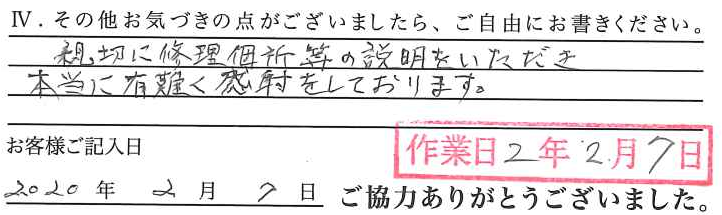 Ⅳ．その他お気づきの点がございましたら、ご自由にお書きください。
親切に修理個所等の説明をいただき
本当に有難く感射をしております。
お客様ご記入日
作業日2年2月7日
2020年2月7日
ご協力ありがとうございました。